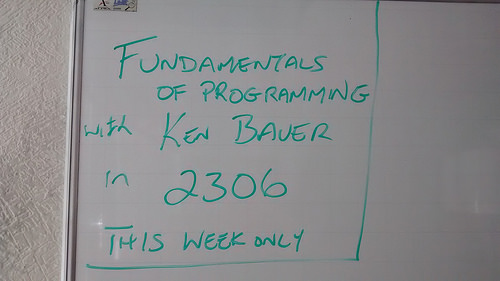 FUNDAMENTALS
OF PROGRAMMING
with KEN BAUER
in 2306
THIS WEEK ONLY